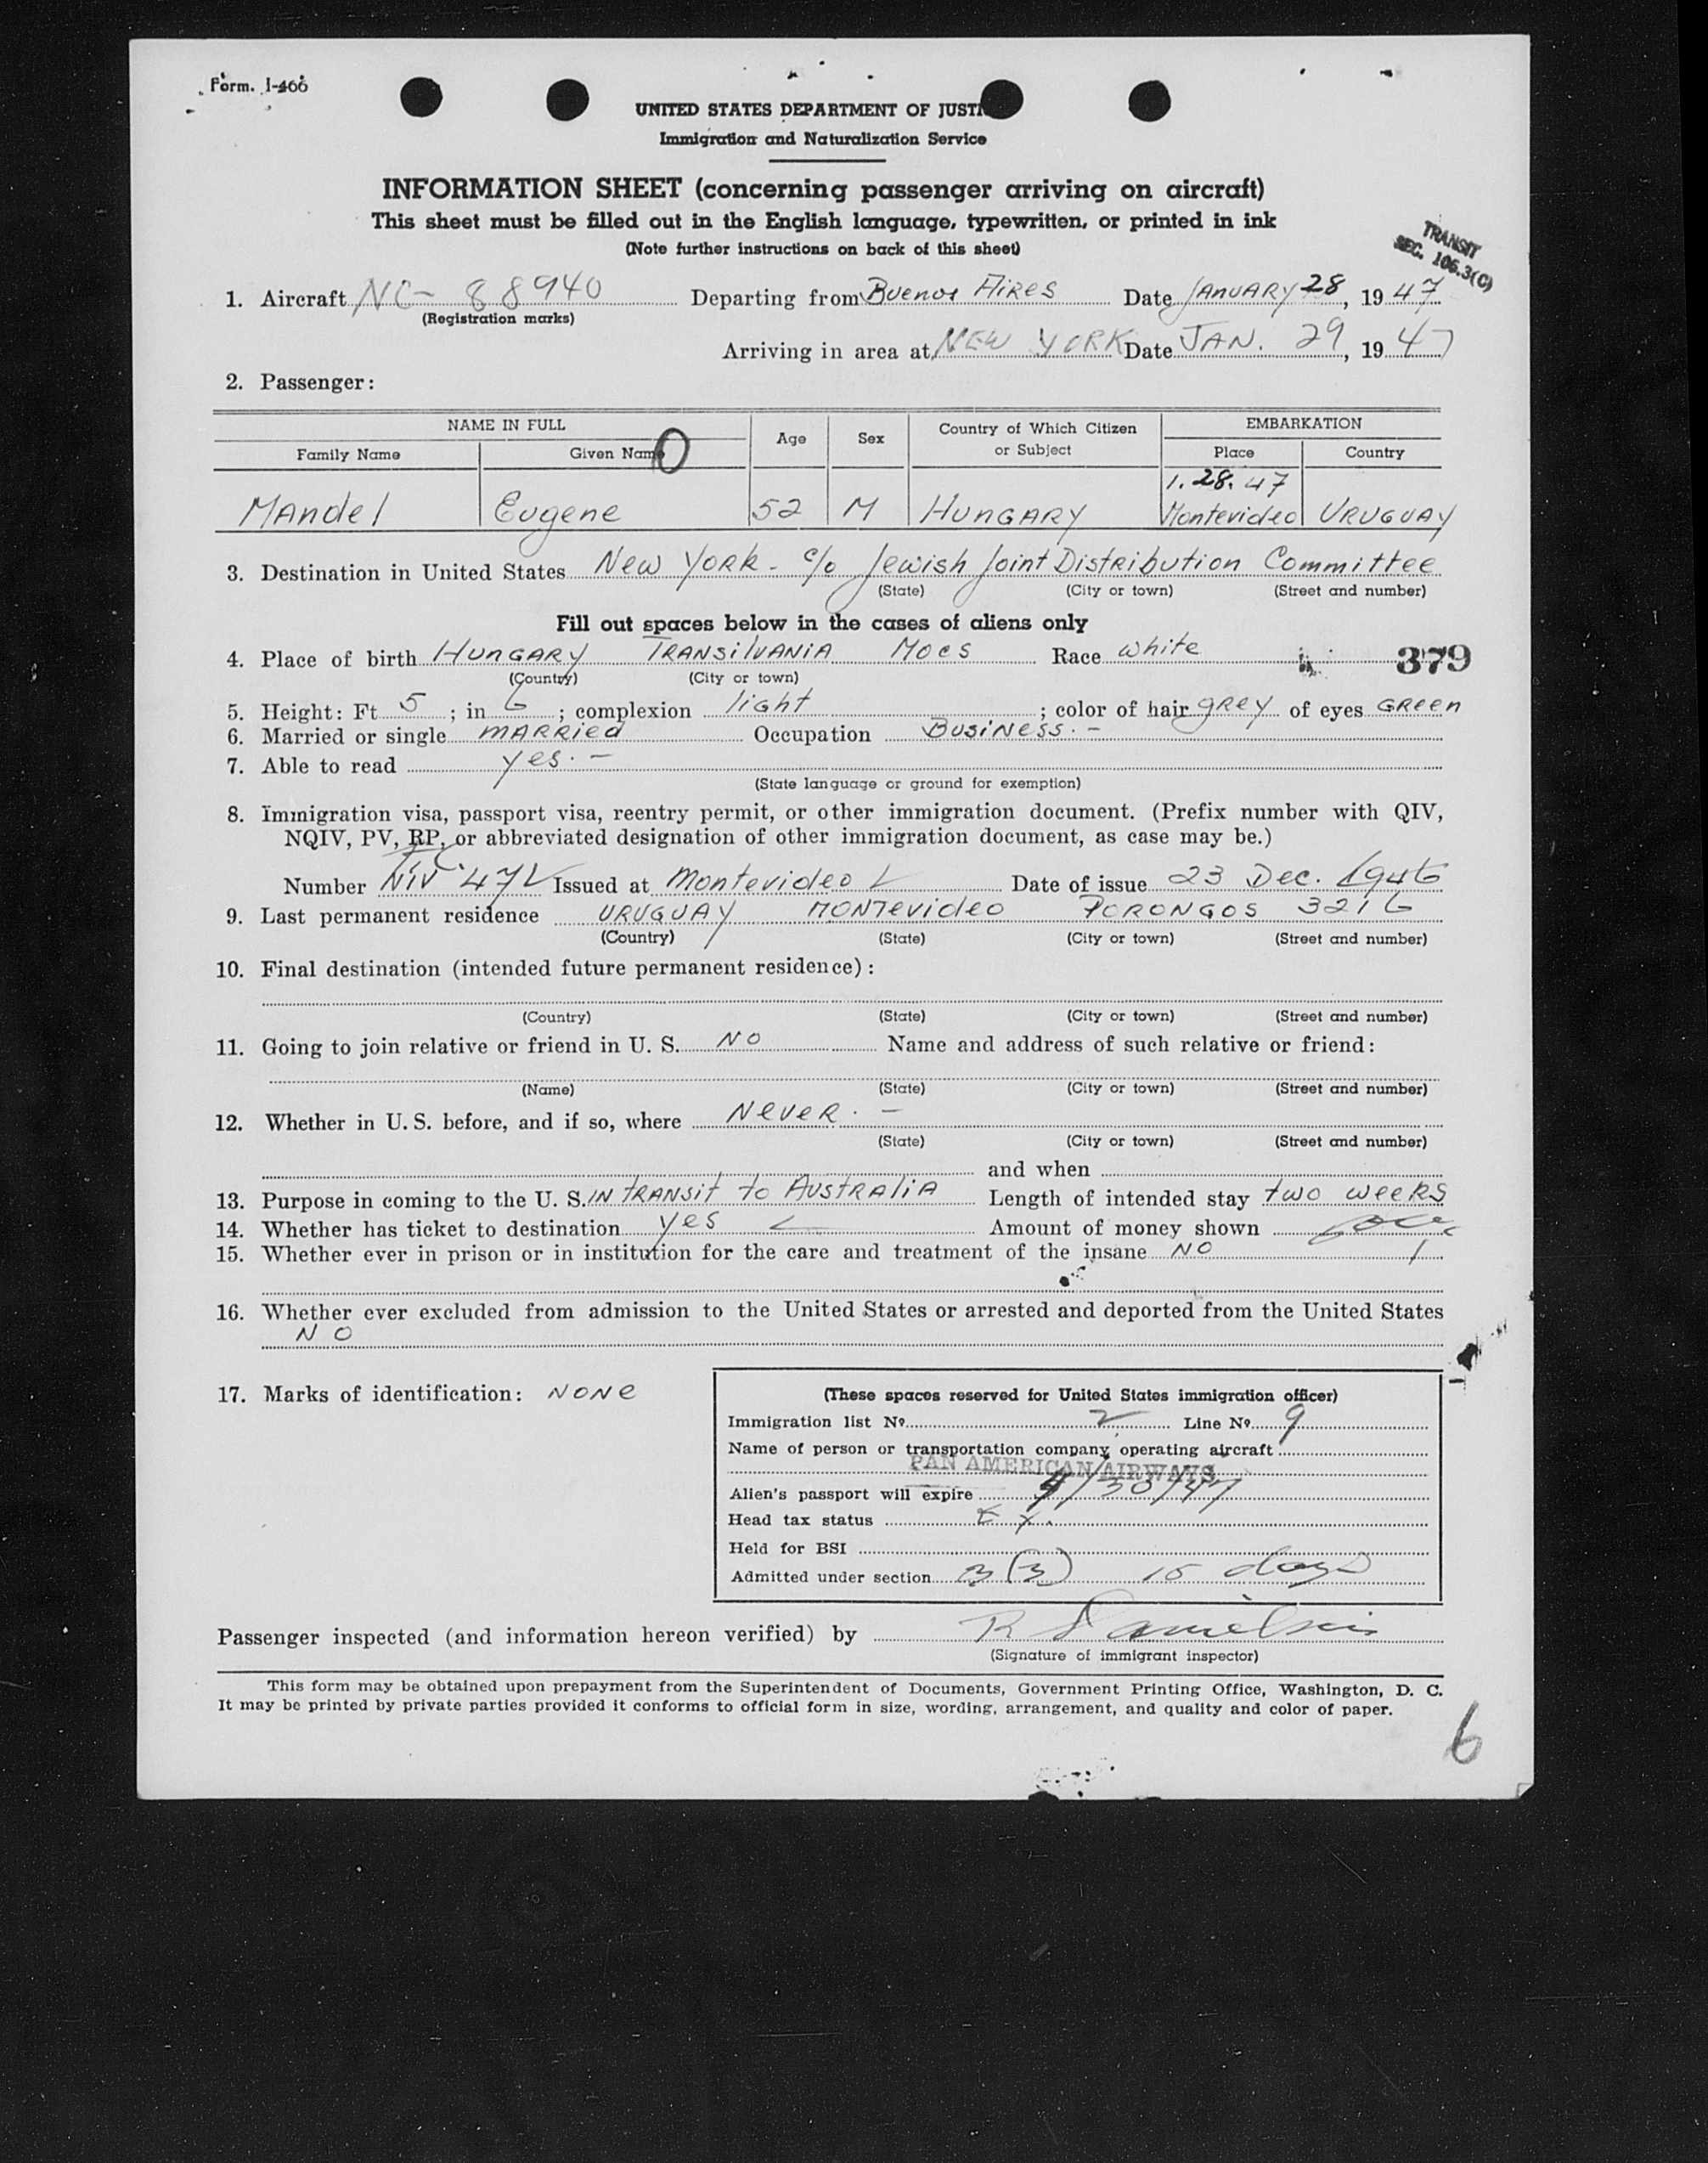 Form. I-466
UNITED STATES DEPARTMENT OF JUSTI
Immigration and Naturalization Service
INFORMATION SHEET (concerning passenger arriving on aircraft)
This sheet must be filled out in the English language, typewritten, or printed in ink
(Note further instructions on back of this sheet)
TRANSIT
SEC. 106.3(C)
1. Aircraft NC- 88940 Departing from Buenos Aires Date January 28, 1947
(Registration marks)
Arriving in area at New York Date Jan. 29, 1947
2. Passenger:
NAME IN FULL Age Sex Country of Which Citizen or Subject EMBARKATION
Family Name Given Name Place Country
0
1.28.47
Mandel Eugene 52 M Hungary Montevideo Uruguay
3. Destination in United States New York - c/o Jewish Joint Distribution Committee
(State) (City or town) (Street and number)
Fill out spaces below in the cases of aliens only
4. Place of birth Hungary Transilvania Mocs Race white 379
(Country) (City or town)
5. Height: Ft 5; in 6; complexion light; color of hair grey of eyes green
6. Married or single married Occupation Business. -
7. Able to read yes. -
(State language or ground for exemption)
8. Immigration visa, passport visa, reentry permit, or other immigration document. (Prefix number with QIV,
NQIV, PV, RP, or abbreviated designation of other immigration document, as case may be.)
Number NIV 47 Issued at Montevideo Date of issue 23 Dec. 1946
9. Last permanent residence Uruguay Montevideo Porongos 3216
(Country) (State) (City or town) (Street and number)
10. Final destination (intended future permanent residence):
(Country) (State) (City or town) (Street and number)
11. Going to join relative or friend in U. S. No Name and address of such relative or friend:
(Name) (State) (City or town) (Street and number)
12. Whether in U. S. before, and if so, where Never. -
(State) (City or town) (Street and number)
and when
13. Purpose in coming to the U. S. in transit to Australia Length of intended stay two weeks
14. Whether has ticket to destination yes Amount of money shown
15. Whether ever in prison or in institution for the care and treatment of the insane No
16. Whether ever excluded from admission to the United States or arrested and deported from the United States
No
17. Marks of identification: None
(These spaces reserved for United States immigration officer)
Immigration list No. 2 Line No. 9
Name of person or transportation company operating aircraft
PAN AMERICAN AIRWAYS
Alien's passport will expire 4/30/47
Head tax status Ex.
Held for BSI
Admitted under section 3(3) 15 days
Passenger inspected (and information hereon verified) by R Danielson
(Signature of immigrant inspector)
This form may be obtained upon prepayment from the Superintendent of Documents, Government Printing Office, Washington, D. C.
It may be printed by private parties provided it conforms to official form in size, wording, arrangement, and quality and color of paper.
6